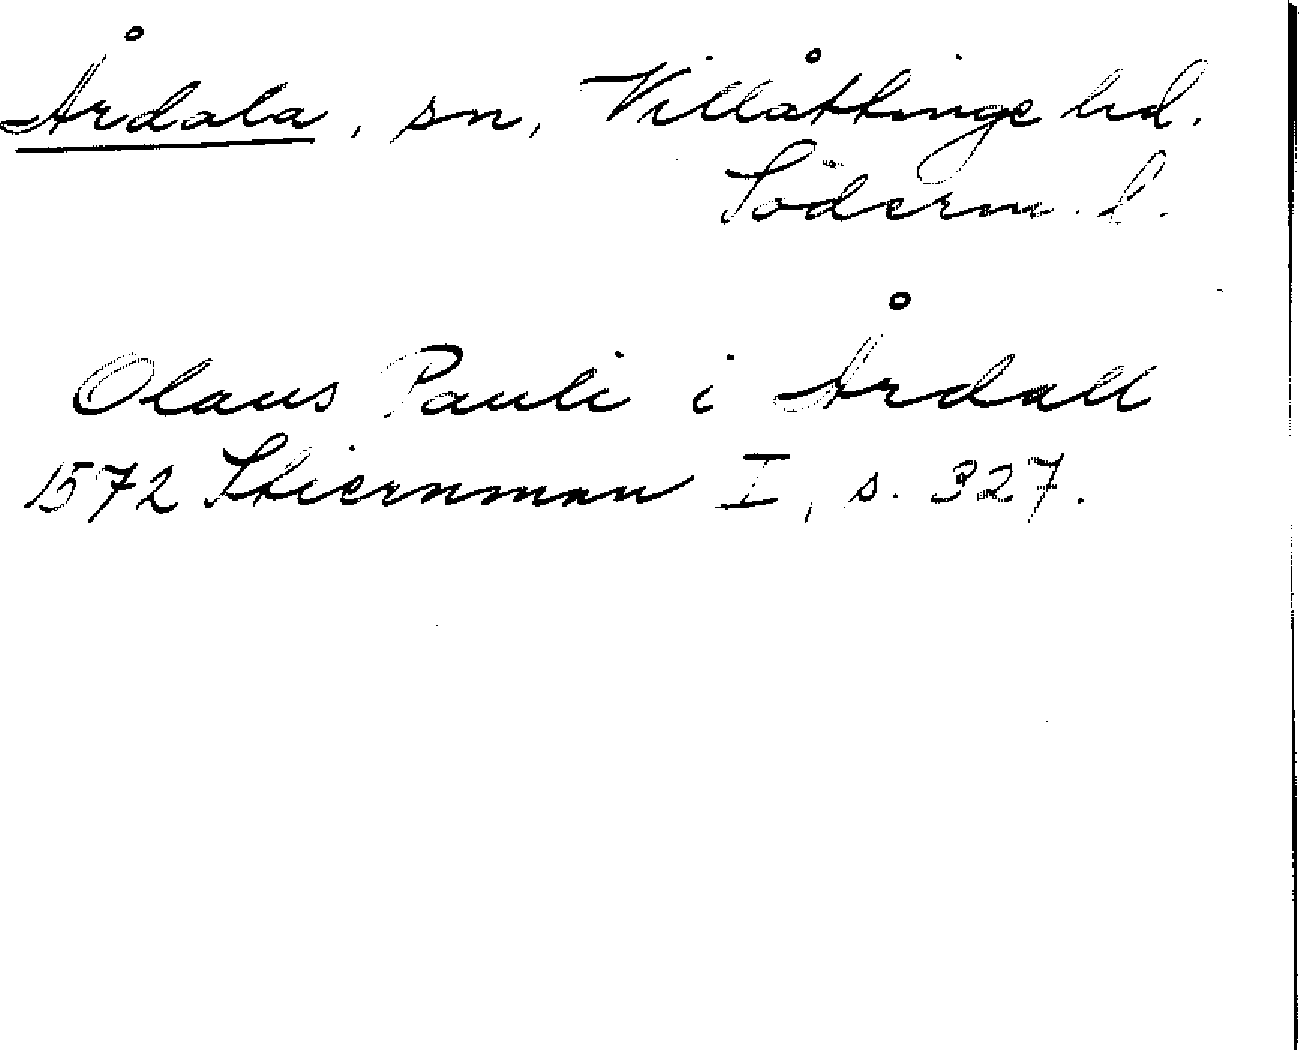 Årdala, sn, Villåttinge hd.
Söderm. l.
Olaus Pauli i Årdall
1572 Stiernman I, s. 327.